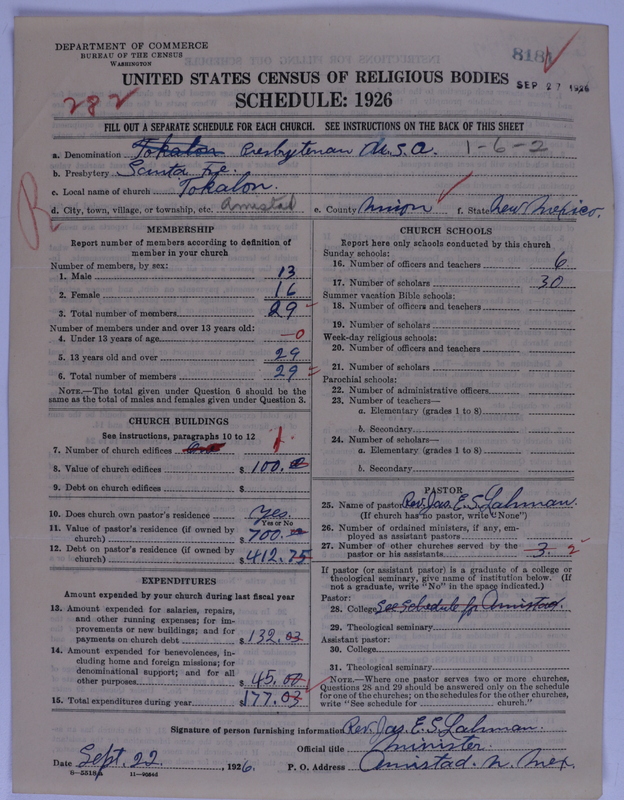 DEPARTMENT OF COMMERCE
BUREAU OF THE CENSUS
WASHINGTON
8181
SEP 27 1926
UNITED STATES CENSUS OF RELIGIOUS BODIES
SCHEDULE: 1926
282
FILL OUT A SEPARATE SCHEDULE FOR EACH CHURCH. SEE INSTRUCTIONS ON THE BACK OF THIS SHEET
a. Denomination Tokalon Presbyterian U.S.A. 1-6-2
b. Presbytery Santa Fe.
c. Local name of church Tokalon.
d. City, town, village, or township, etc. Amistad e. County Union f. State New Mexico.
R
MEMBERSHIP
Report number of members according to definition of
member in your church
Number of members, by sex:
1. Male 13
2. Female 16
3. Total number of members 29
Number of members under and over 13 years old:
4. Under 13 years of age 0
5. 13 years old and over 29
6. Total number of members 29
NOTE.—The total given under Question 6 should be
same as the total of males and females given under Question 3.
CHURCH BUILDINGS
See instructions, paragraphs 10 to 12
7. Number of church edifices 1
8. Value of church edifices $100.00
9. Debt on church edifices $
10. Does church own pastor's residence Yes.
Yes or No
11. Value of pastor's residence (if owned by
church) $700.00
12. Debt on pastor's residence (if owned by
church) $412.75
EXPENDITURES
Amount expended by your church during last fiscal year
13. Amount expended for salaries, repairs,
and other running expenses; for im-
provements or new buildings; and for
payments on church debt $132.03
14. Amount expended for benevolences, in-
cluding home and foreign missions; for
denominational support; and for all
other purposes $45.00
15. Total expenditures during year $177.03
CHURCH SCHOOLS
Report here only schools conducted by this church
Sunday schools:
16. Number of officers and teachers 6
17. Number of scholars 30
Summer vacation Bible schools:
18. Number of officers and teachers
19. Number of scholars
Week-day religious schools:
20. Number of officers and teachers
21. Number of scholars
Parochial schools:
22. Number of administrative officers
23. Number of teachers—
a. Elementary (grades 1 to 8)
b. Secondary
24. Number of scholars—
a. Elementary (grades 1 to 8)
b. Secondary
PASTOR
25. Name of pastor Rev. Jas. E. S. Lahman.
(If church has no pastor, write "None")
26. Number of ordained ministers, if any, em-
ployed as assistant pastors
27. Number of other churches served by the
pastor or his assistants 3. 2
If pastor (or assistant pastor) is a graduate of a college or
theological seminary, give name of institution below. (If
not a graduate, write "No" in the space indicated.)
Pastor:
28. College See Schedule for Amistad.
29. Theological seminary
Assistant pastor:
30. College
31. Theological seminary
NOTE.—Where one pastor serves two or more churches,
Questions 28 and 29 should be answered only on the schedule
for one of the churches; on the schedules for the other churches,
write "See schedule for church."
Signature of person furnishing information Rev. Jas. E. S. Lahman.
Official title Minister.
Date Sept. 22, 1926. P. O. Address Amistad. N. Mex.